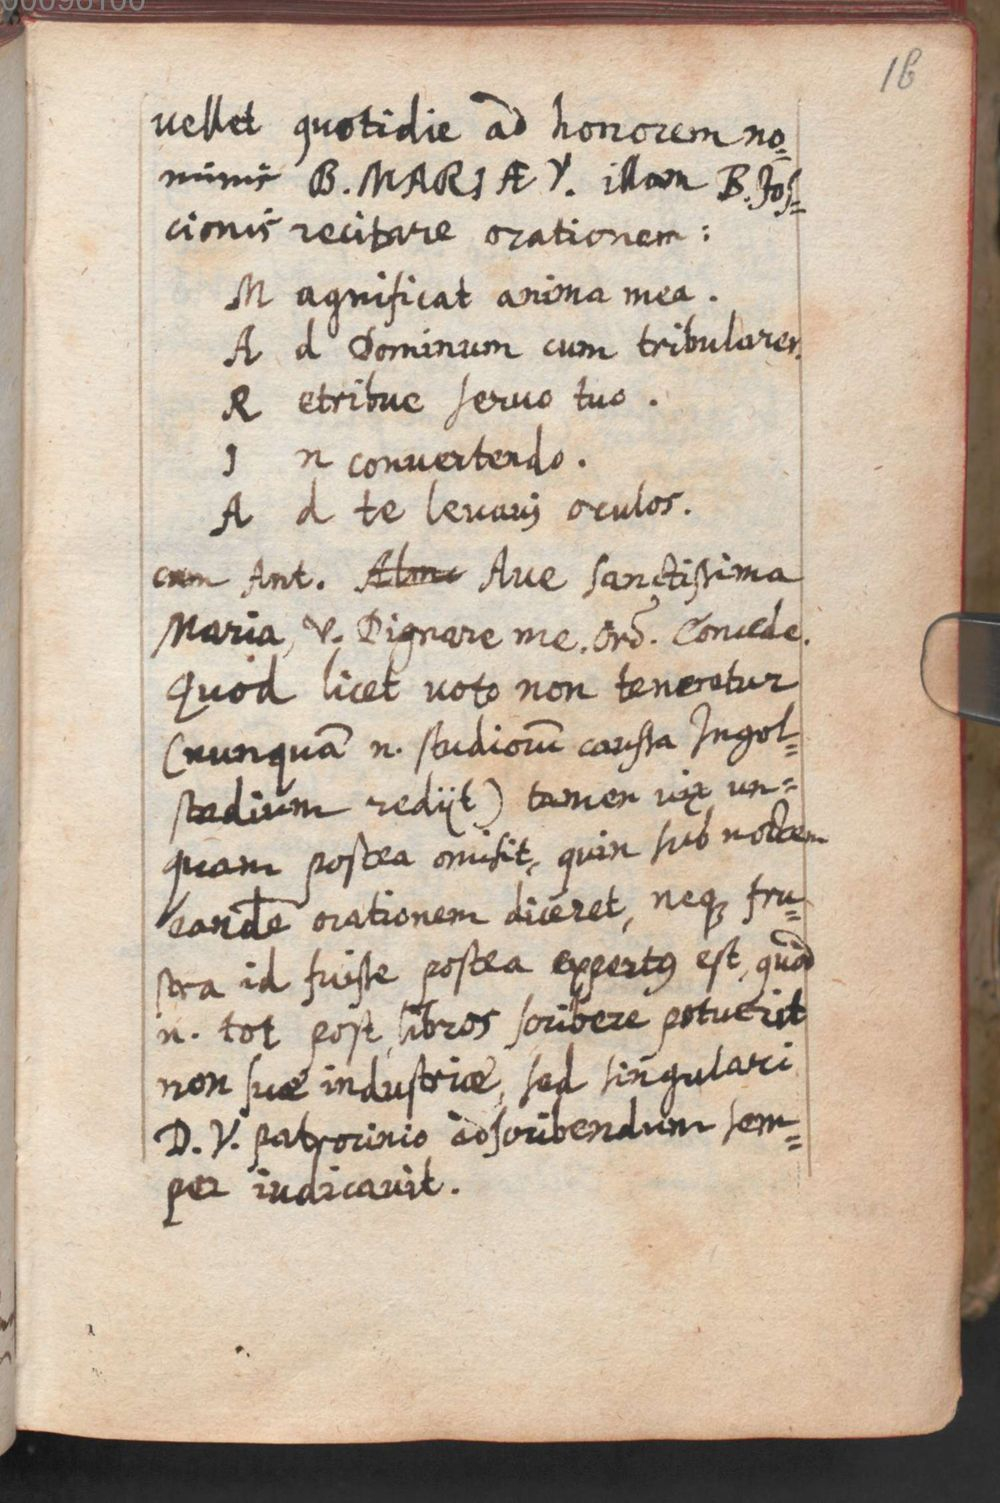 00096100
16
vellet quotidie ad honorem no=
minis B. MARIÆ V. illam B. Jos=
cionis recitare orationem:
M agnificat anima mea.
A d Dominum cum tribularer.
R etribue servo tuo.
I n convertendo.
A d te levavi oculos.
cum Ant. Alma Ave sanctissima
Maria, V. Dignare me. Orõ. Concede.
Quod licet voto non teneretur
(nunquã n. studiorũ caussa Ingol=
stadium redijt) tamen vix un=
quam postea omisit, quin sub noctem
eandẽ orationem diceret, neq; fru=
stra id fuisse postea expertus est, quòd
n. tot post libros scribere potuerit
non suæ industriæ, sed singulari
D. V. patrocinio adscribendum sem=
per iudicavit.